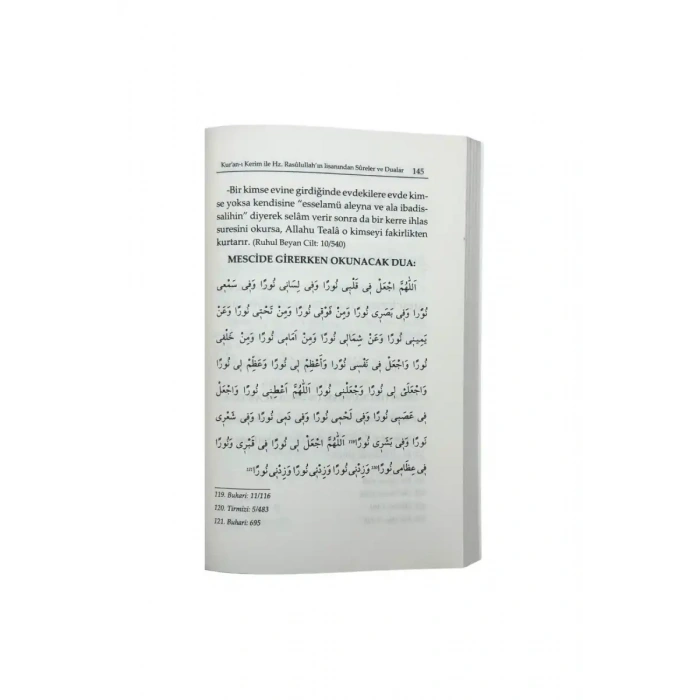 Kur'an-ı Kerim ile Hz. Rasûlullah'ın lisanından Sûreler ve Dualar 145
-Bir kimse evine girdiğinde evdekilere evde kim-
se yoksa kendisine "esselamü aleyna ve ala ibadis-
salihin" diyerek selâm verir sonra da bir kerre ihlas
suresini okursa, Allahu Tealâ o kimseyi fakirlikten
kurtarır. (Ruhul Beyan Cilt: 10/540)
MESCİDE GİRERKEN OKUNACAK DUA:
اَللّٰهُمَّ اجْعَلْ فِي قَلْبِي نُورًا وَفِي لِسَانِي نُورًا وَفِي سَمْعِي
نُورًا وَفِي بَصَرِي نُورًا وَمِنْ فَوْقِي نُورًا وَمِنْ تَحْتِي نُورًا وَعَنْ
يَمِينِي نُورًا وَعَنْ شِمَالِي نُورًا وَمِنْ اَمَامِي نُورًا وَمِنْ خَلْفِي
نُورًا وَاجْعَلْ فِي نَفْسِي نُورًا وَأَعْظِمْ لِي نُورًا وَعَظِّمْ لِي نُورًا
وَاجْعَلْنِي نُورًا وَجْعَلْنِي نُورًا اَللّٰهُمَّ اَعْطِنِي نُورًا وَاجْعَلْ
فِي عَصَبِي نُورًا وَفِي لَحْمِي نُورًا وَفِي دَمِي نُورًا وَفِي شَعْرِي
نُورًا وَفِي بَشَرِي نُورًا[119] اَللّٰهُمَّ اجْعَلْ لِي نُورًا فِي قَبْرِي وَنُورًا
فِي عِظَامِي نُورًا[120] وَزِدْنِي نُورًا وَزِدْنِي نُورًا وَزِدْنِي نُورًا[121]
119. Buhari: 11/116
120. Tirmizi: 5/483
121. Buhari: 695